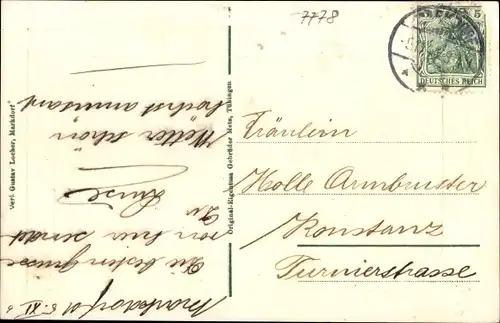 7778
5
DEUTSCHES REICH
Fräulein
Holle Armbruster
Konstanz
Turnierstrasse
Markdorf d. 5. XI.
Die besten Grüsse
von hier sendet
Dir
Luise
Wetter schön
höchst amüsant
Verl. Gustav Locher, Markdorf
Original-Eigentum Gebrüder Metz, Tübingen